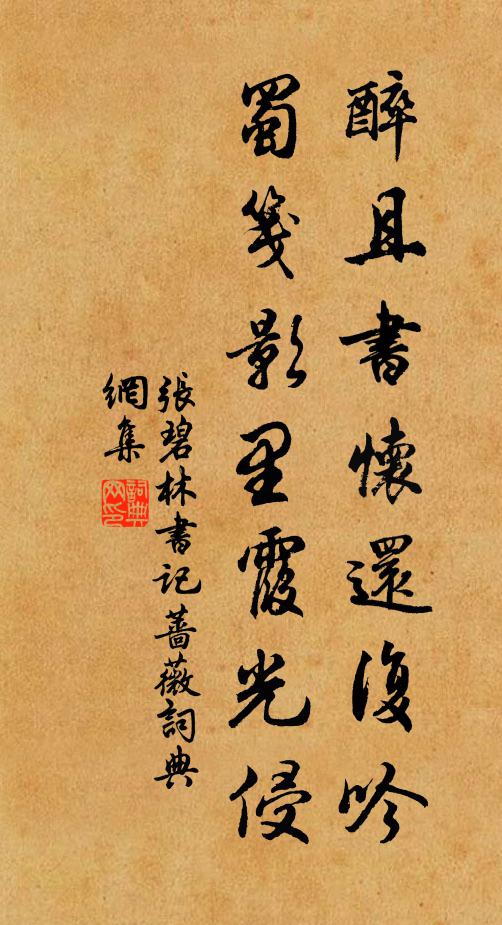 醉且書懷還復吟
蜀箋影里霞光侵
張碧林書記薔薇詞典
網集
詞典
网印